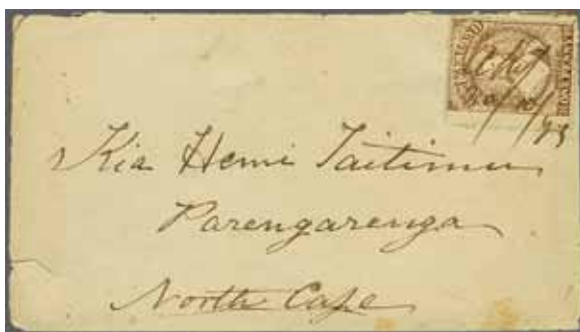 Kia Hemi Taitimu
Parengarenga
North Cape